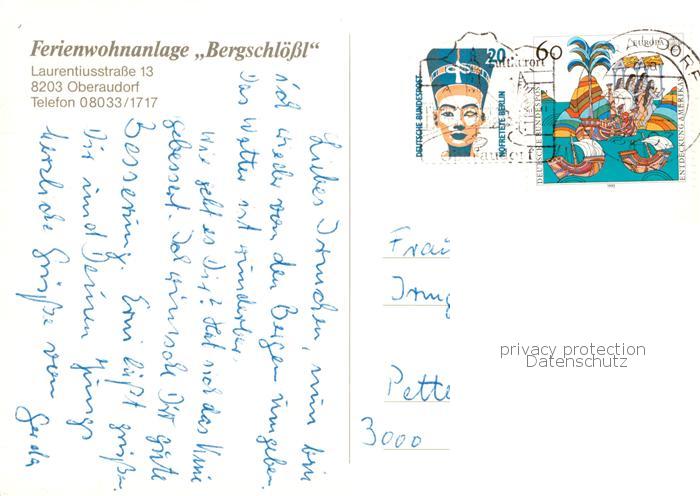 Ferienwohnanlage „Bergschlößl"
Laurentiusstraße 13
8203 Oberaudorf
Telefon 08033/1717
Liebes Irmchen, nun bin
ich wieder von den Bergen umgeben.
Das Wetter ist wunderbar.
Wie geht es Dir? Hat sich das Knie
gebessert. Ich wünsche Dir gute
Besserung. Erni läßt grüßen.
Dir und Deinen Jungs
herzliche Grüße von Gerda
20
DEUTSCHE BUNDESPOST
NOFRETETE BERLIN
60
EUROPA
DEUTSCHE BUNDESPOST
ENTDECKUNG AMERIKAS
1992
Frau
Irmg
Pette
3000
privacy protection
Datenschutz